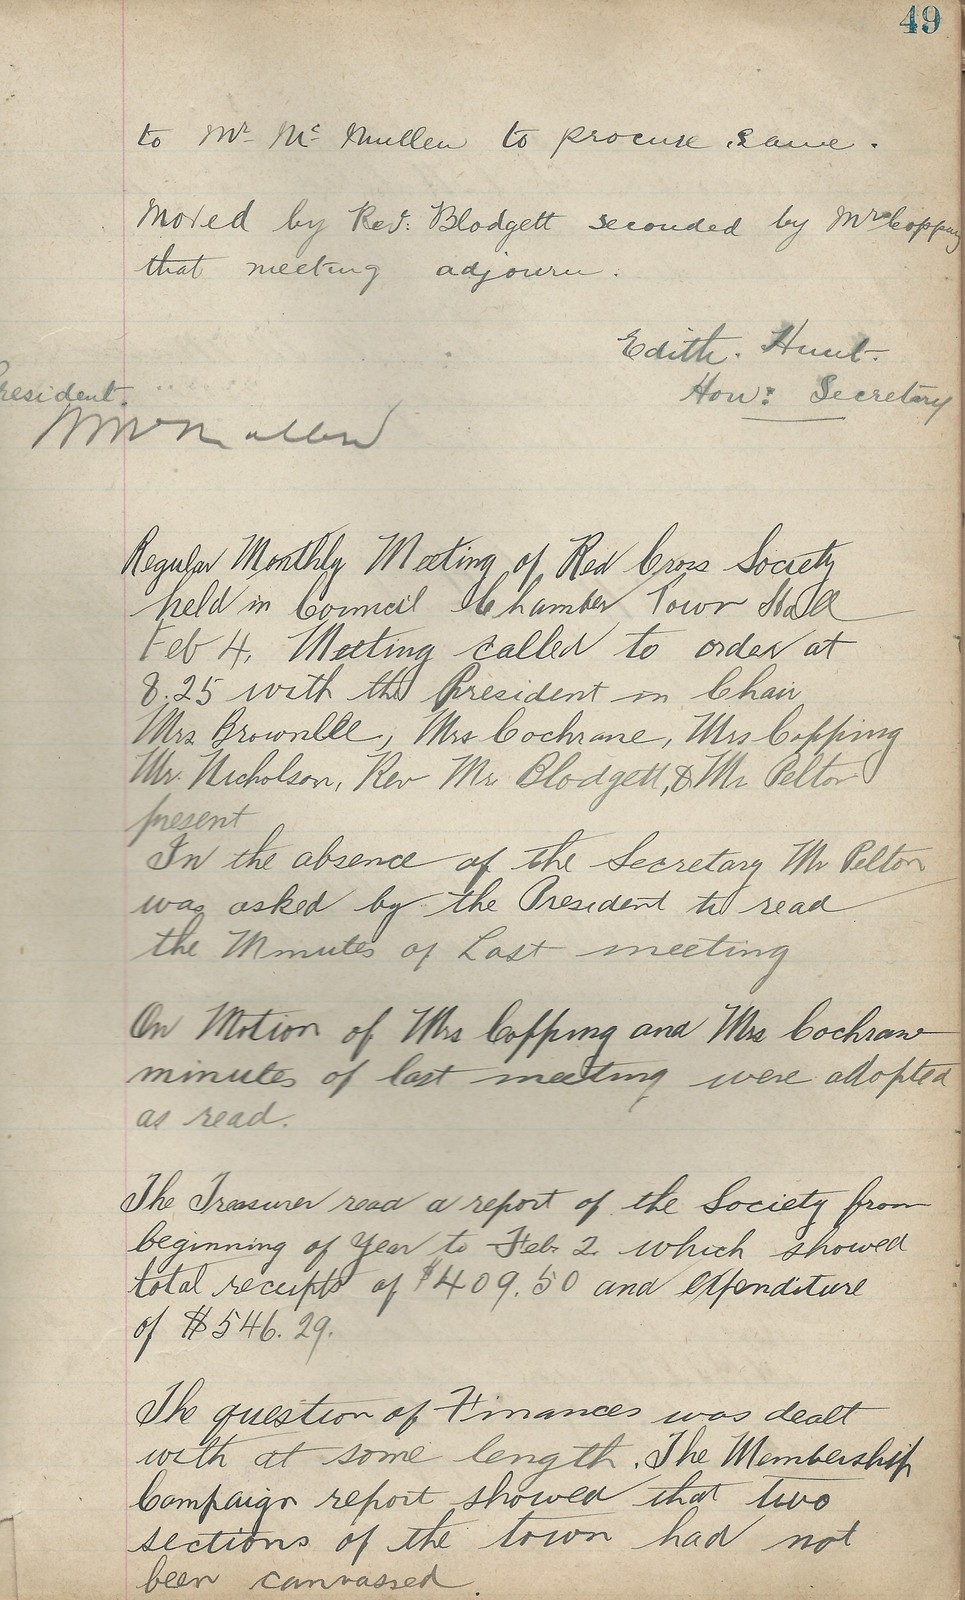 49
to Mr. Mc Mullen to procure same.
Moved by Rev. Blodgett seconded by Mrs Copping
that meeting adjourn.
Edith. Hunt.
Hon: Secretary
President.
Regular Monthly Meeting of Red Cross Society
held in Council Chamber Town Hall
Feb 4. Meeting called to order at
8.25 with the President in Chair
Mrs Brownlee, Mrs Cochrane, Mrs Copping
Mr. Nicholson, Rev Mr. Blodgett, & Mr Pelton
present
In the absence of the Secretary Mr Pelton
was asked by the President to read
the Minutes of Last meeting
On Motion of Mrs Copping and Mrs Cochrane
minutes of last meeting were adopted
as read.
The Treasurer read a report of the Society from
beginning of Year to Feb. 2 which showed
total receipts of $409.50 and expenditure
of $546.29.
The question of Finances was dealt
with at some length. The Membership
Campaign report showed that two
sections of the town had not
been canvassed.